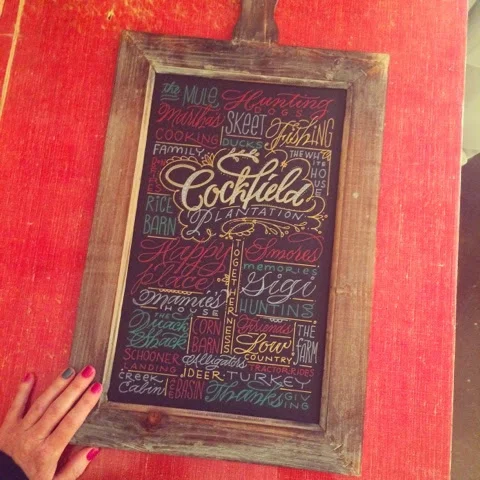 the MULE Hunting
DOGS
Martha's
COOKING
SKEET
Fishing
DUCKS
FAMILY
THE WHITE HOUSE
the
Cockfield
PLANTATION
RICE
BARN
Happy
Place
TOGETHERNESS
S'mores
memories
Gigi
Mamie's
HOUSE
HUNTING
THE
Quack
Shack
CORN
BARN
Friends
Low
COUNTRY
THE
FARM
SCHOONER
LANDING
Alligators
TRACTOR RIDES
DEER TURKEY
CREEK
Cabin
THE
BASIN
Thanks
GIVING